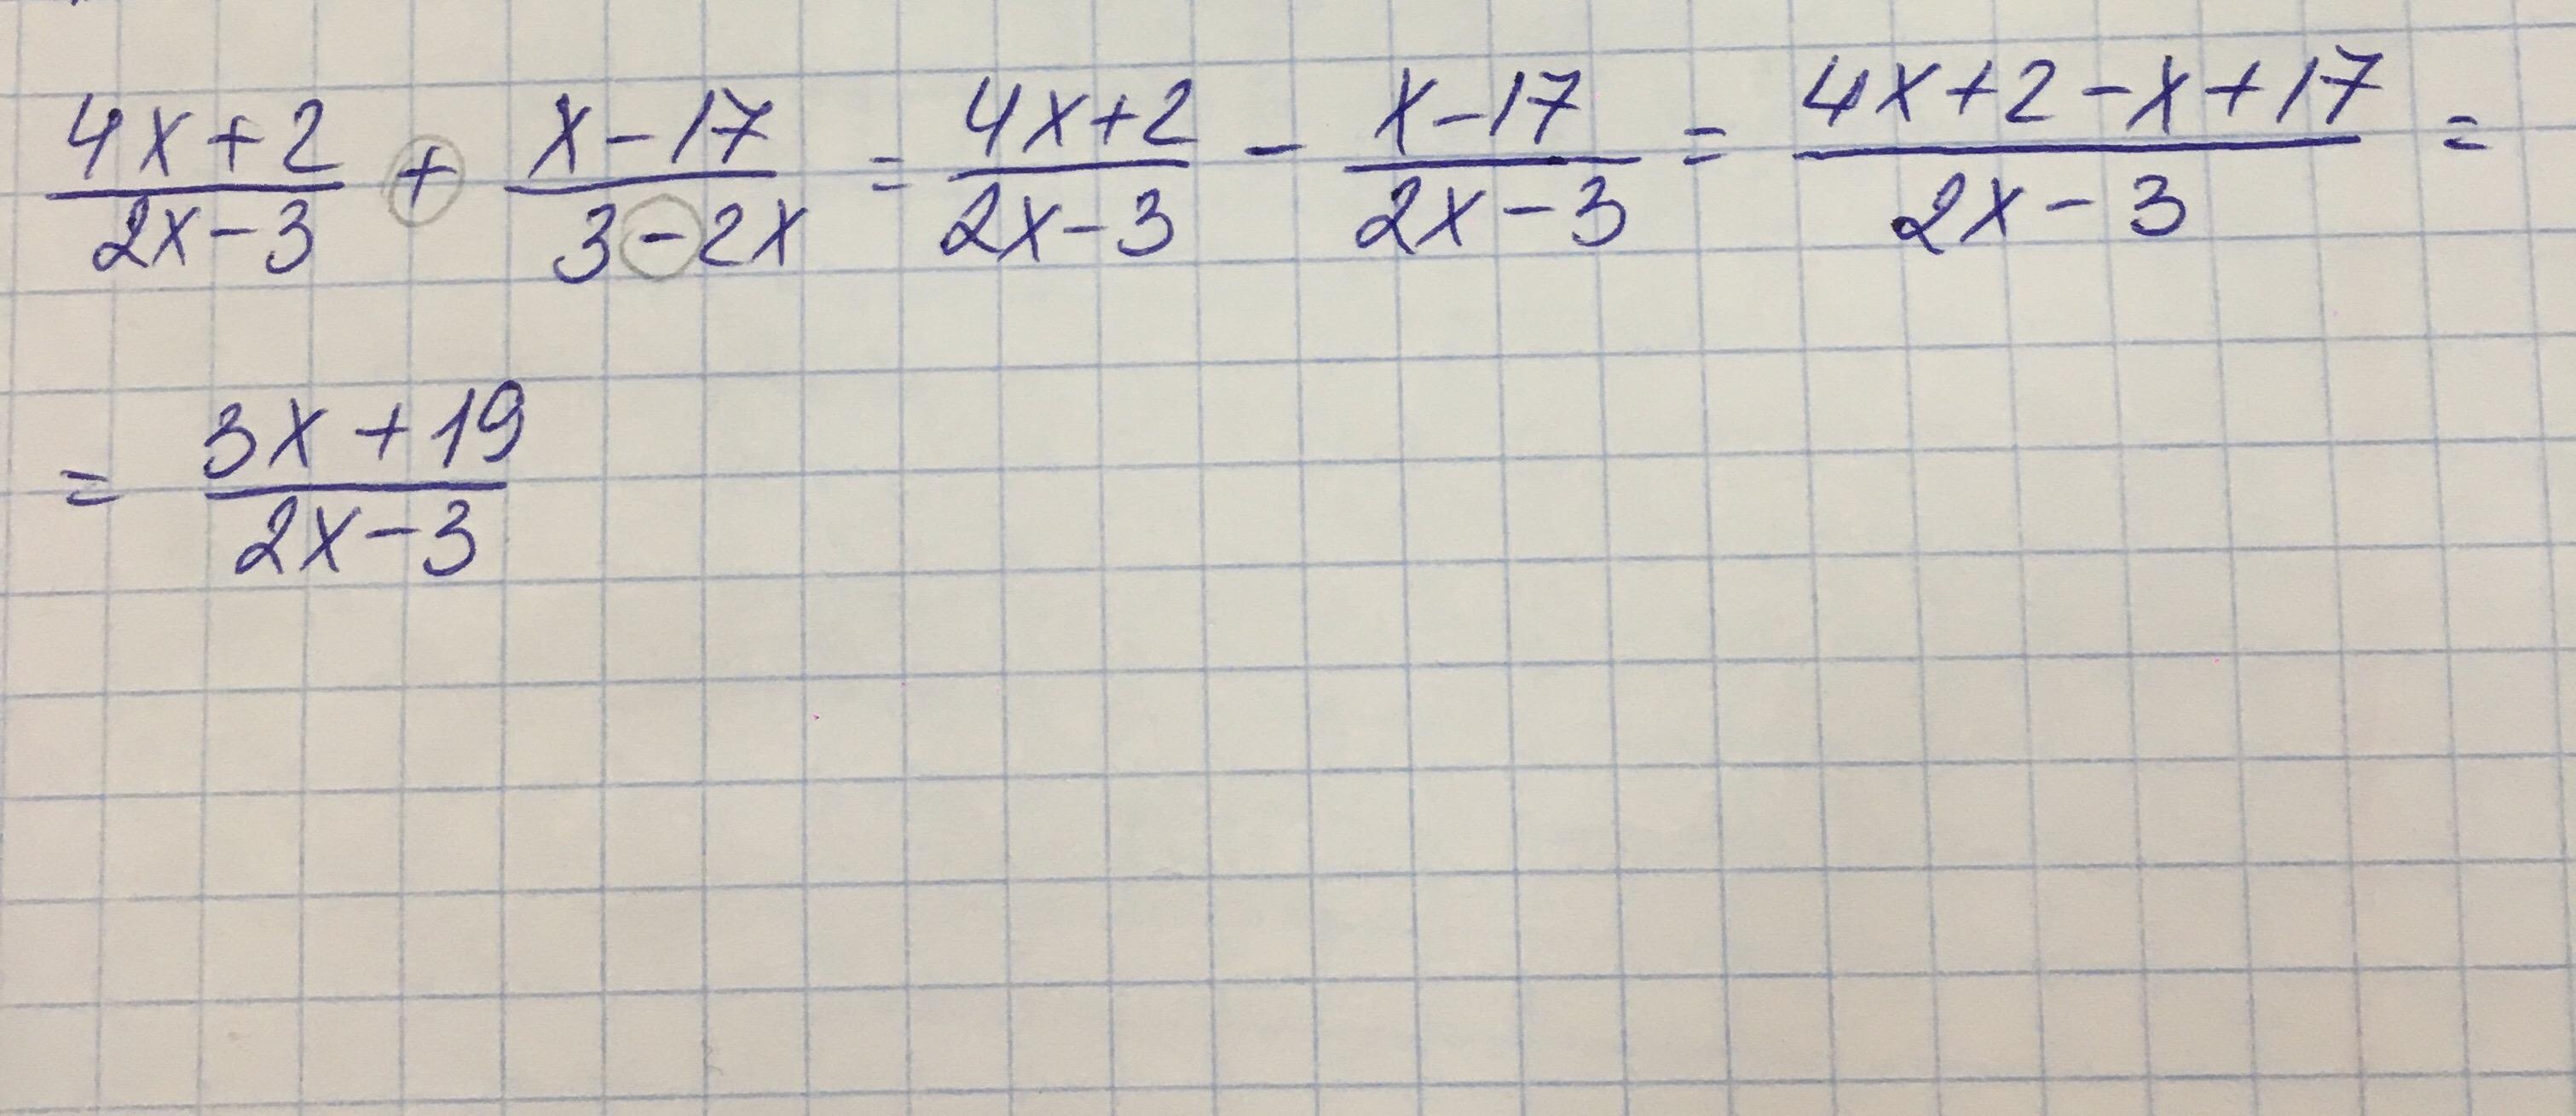 (4x+2)/(2x-3) + (x-17)/(3-2x) = (4x+2)/(2x-3) - (x-17)/(2x-3) = (4x+2-x+17)/(2x-3) =
= (3x+19)/(2x-3)